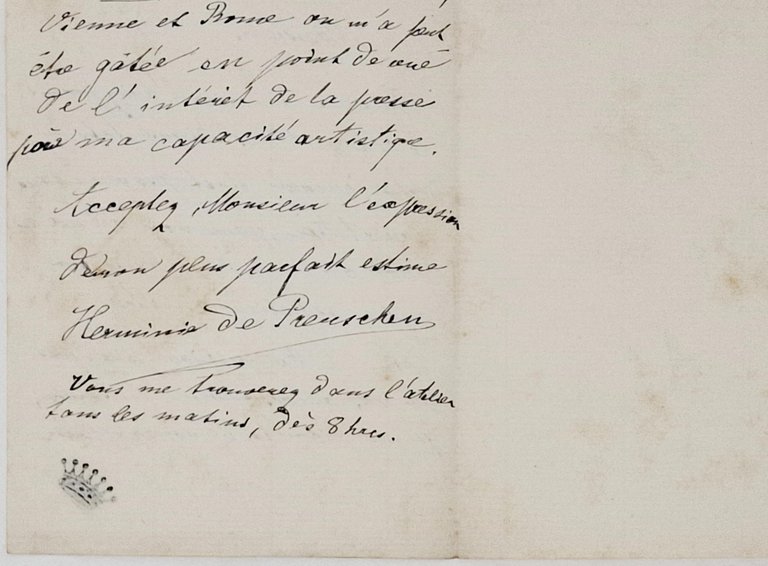 Vienne et Rome on m'a peut
être gâtée en point de vue
de l'intérêt de la presse
pour ma capacité artistique.
Acceptez, Monsieur l'expression
de mon plus parfait estime
Herminie de Preuschen
Vous me trouverez dans l'atelier
tous les matins, dès 8 hres.